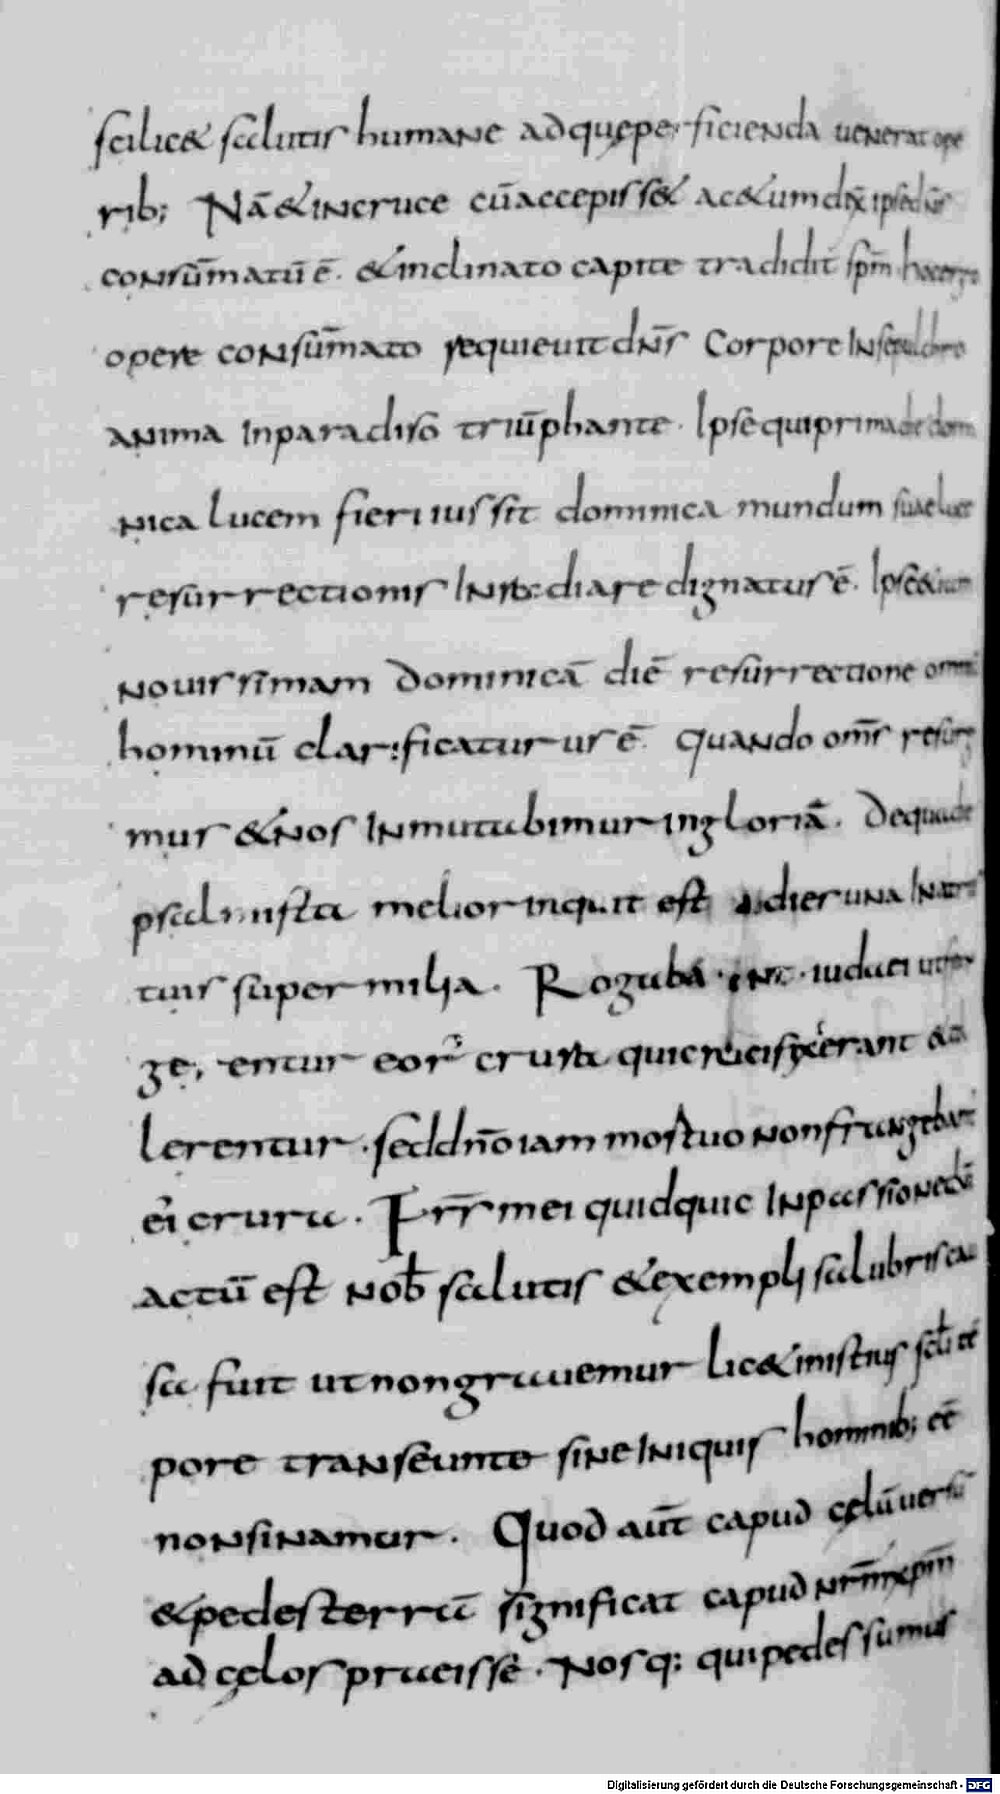 scilic& salutis humane adquęperficienda uenerat ope
rib; Nā & incruce cū accepiss& ac&um dix̄ ipse dn̄s
consūmatū ē. & inclinato capite tradidit sp̄m hoc ergo
opere consūmato requieuit dn̄s Corpore In sepulchro
anima In paradiso triūphante. Ipse qui prima die domi
nica lucem fieri iussit dominica mundum suae luce
resurrectionis dignatus ē. Ipse
nouissimam dominicā diē resurrectione omniū
hominū clarificaturus ē. quando om̄s resurge
mur & nos Inmutabimur in gloriā. De qua die
psalmista melior inquit est dies una In atriis
tuis super milia. Rogabā iudaei ut
gerentur eor crura qui crucifixi erant & tol
lerentur. sed dn̄o iam mortuo non frangebant
ei crura. Frr̄ mei quidquic In passione dn̄i
actū est nob̄ salutis & exempli salubris cau
sa fuit ut non grauemur lic& in istius
pore transeunte sine Iniquis hominib; eē
non sinamur. Quod aūt capud cęlū uersū
& pedes terrā significat capud nr̄m xp̄m
ad cęlos praeisse. Nosq; qui pedes sumus
Digitalisierung gefördert durch die Deutsche Forschungsgemeinschaft - DFG